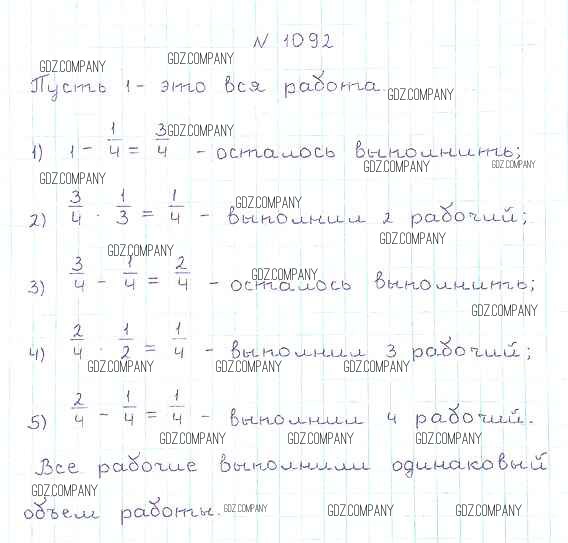 N 1092
GDZ.COMPANY GDZ.COMPANY
Пусть 1 - это вся работа.
GDZ.COMPANY
GDZ.COMPANY
1) 1 - 1/4 = 3/4 - осталось выполнить;
GDZ.COMPANY GDZ.COMPANY
GDZ.COMPANY
GDZ.COMPANY
2) 3/4 · 1/3 = 1/4 - выполнил 2 рабочий;
GDZ.COMPANY
GDZ.COMPANY
GDZ.COMPANY
3) 3/4 - 1/4 = 2/4 - осталось выполнить;
GDZ.COMPANY
4) 2/4 · 1/2 = 1/4 - выполнил 3 рабочий;
GDZ.COMPANY GDZ.COMPANY GDZ.COMPANY
5) 2/4 - 1/4 = 1/4 - выполнил 4 рабочий.
GDZ.COMPANY GDZ.COMPANY GDZ.COMPANY
Все рабочие выполнили одинаковый
GDZ.COMPANY
объем работы.
GDZ.COMPANY GDZ.COMPANY GDZ.COMPANY